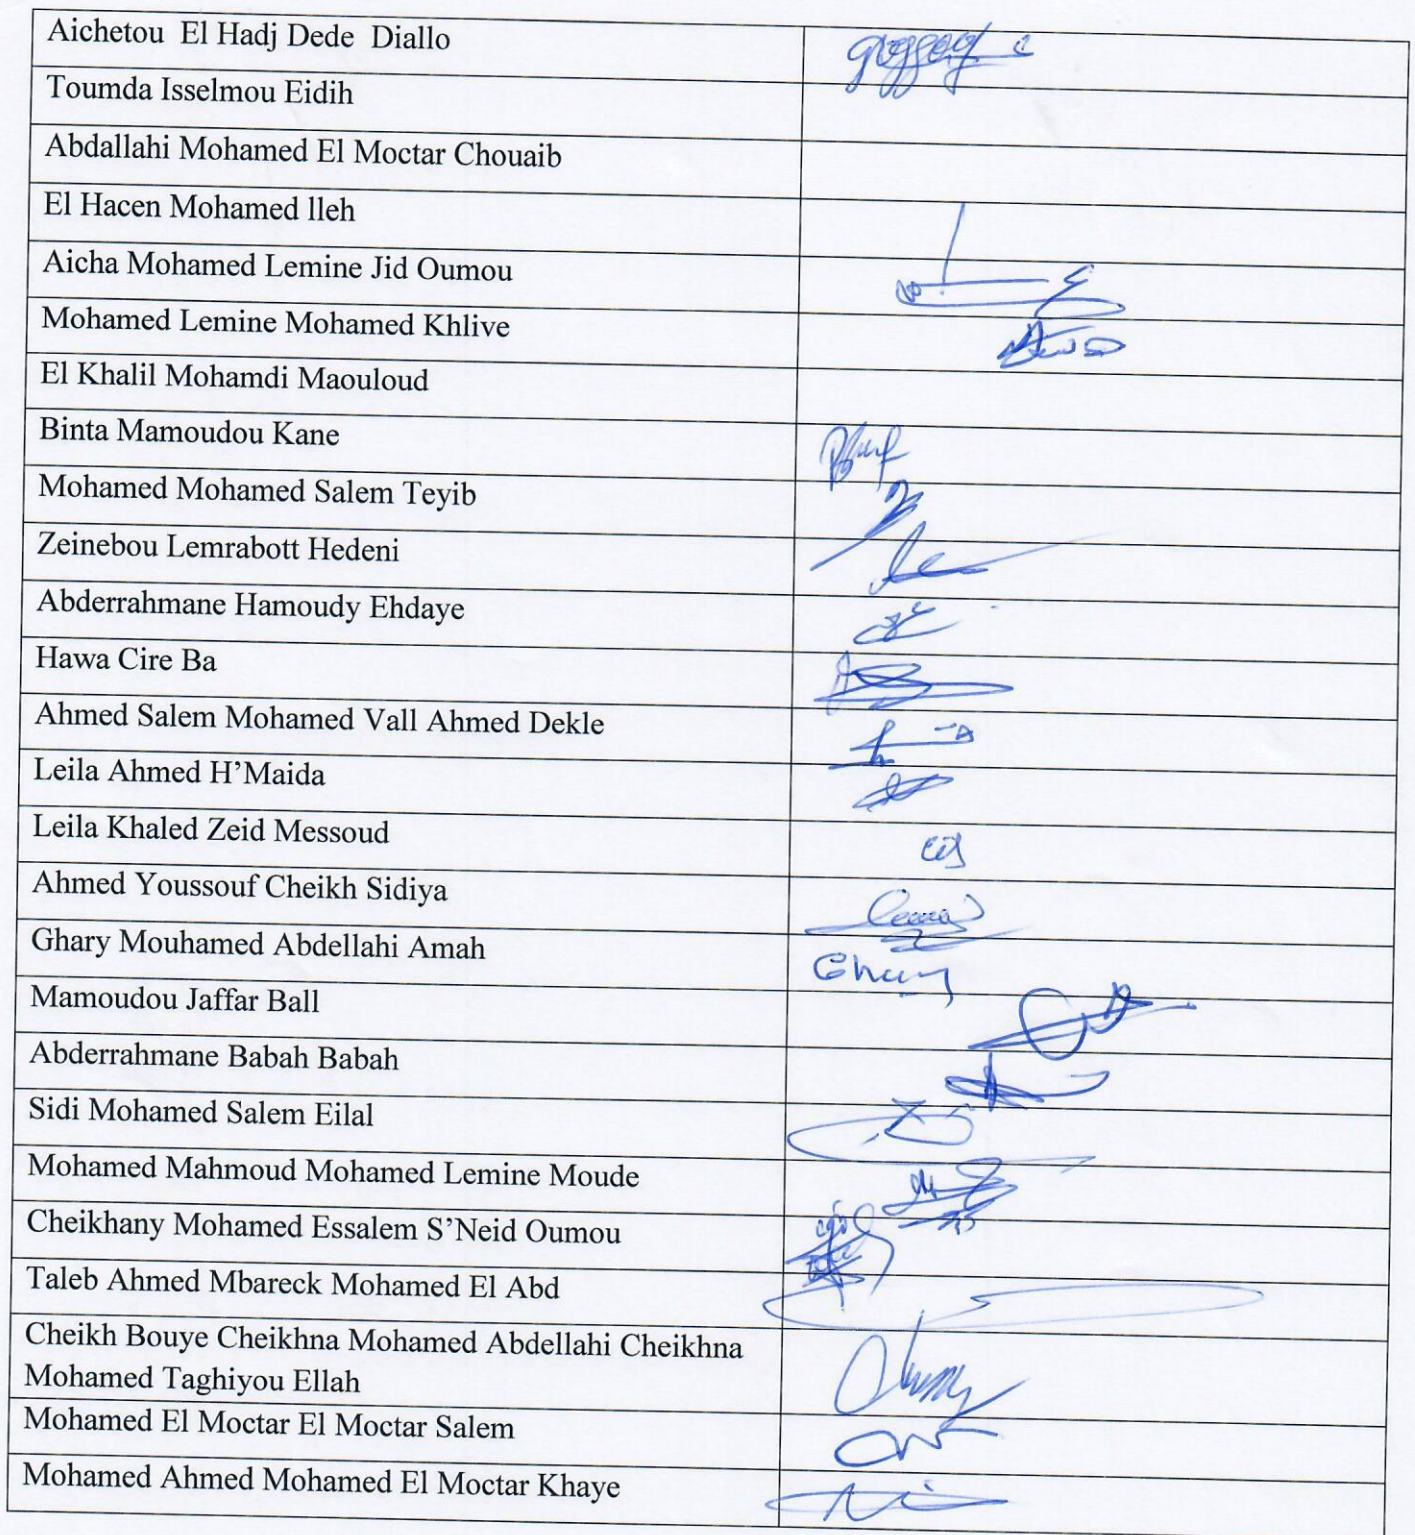 Aichetou El Hadj Dede Diallo
Toumda Isselmou Eidih
Abdallahi Mohamed El Moctar Chouaib
El Hacen Mohamed lleh
Aicha Mohamed Lemine Jid Oumou
Mohamed Lemine Mohamed Khlive
El Khalil Mohamdi Maouloud
Binta Mamoudou Kane
Mohamed Mohamed Salem Teyib
Zeinebou Lemrabott Hedeni
Abderrahmane Hamoudy Ehdaye
Hawa Cire Ba
Ahmed Salem Mohamed Vall Ahmed Dekle
Leila Ahmed H’Maida
Leila Khaled Zeid Messoud
Ahmed Youssouf Cheikh Sidiya
Ghary Mouhamed Abdellahi Amah
Mamoudou Jaffar Ball
Abderrahmane Babah Babah
Sidi Mohamed Salem Eilal
Mohamed Mahmoud Mohamed Lemine Moude
Cheikhany Mohamed Essalem S’Neid Oumou
Taleb Ahmed Mbareck Mohamed El Abd
Cheikh Bouye Cheikhna Mohamed Abdellahi Cheikhna
Mohamed Taghiyou Ellah
Mohamed El Moctar El Moctar Salem
Mohamed Ahmed Mohamed El Moctar Khaye